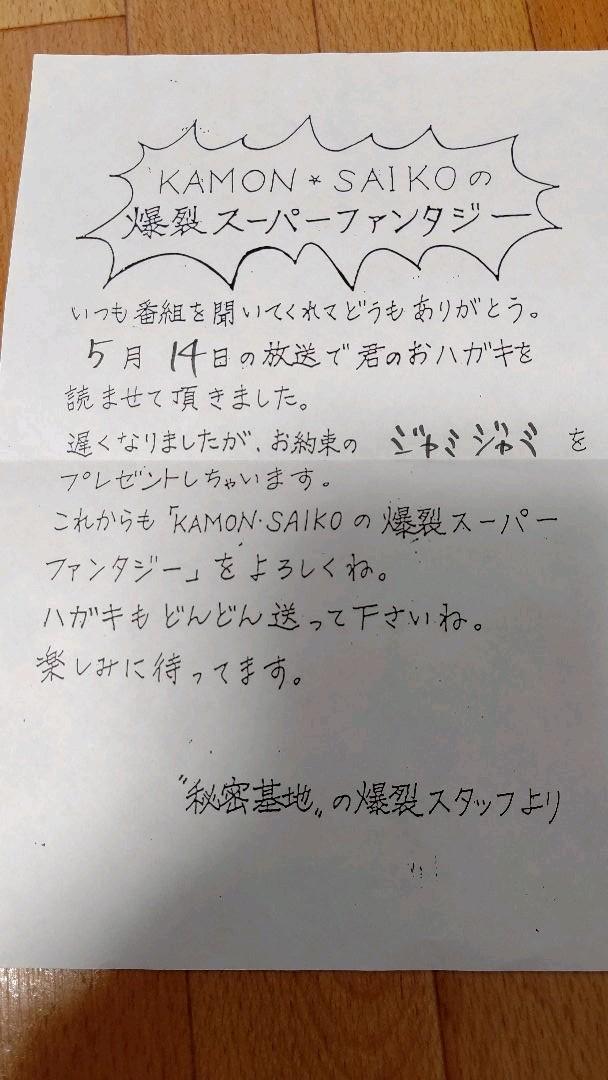 KAMON★SAIKOの
爆裂スーパーファンタジー
いつも番組を聞いてくれてどうもありがとう。
5月14日の放送で君のおハガキを
読ませて頂きました。
遅くなりましたが、お約束の ジャミジャミ を
プレゼントしちゃいます。
これからも「KAMON・SAIKOの爆裂スーパー
ファンタジー」をよろしくね。
ハガキもどんどん送って下さいね。
楽しみに待ってます。
〝秘密基地〟の爆裂スタッフより